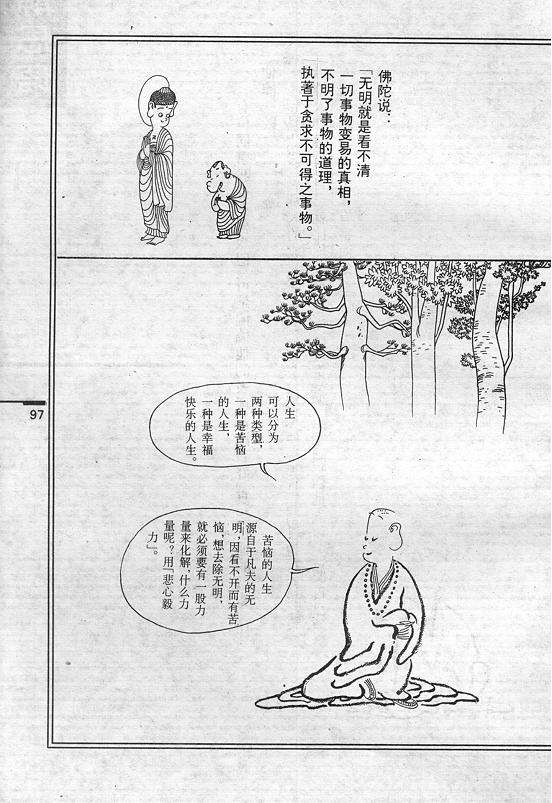 佛陀说：
「无明就是看不清
一切事物变易的真相，
不明了事物的道理，
执著于贪求不可得之事物。」
人生
可以分为
两种类型，
一种是苦恼
的人生，
一种是幸福
快乐的人生。
苦恼的人生
源自于凡夫的无
明，因看不开而有苦
恼，想去除无明，
就必须要有一股力
量来化解，什么力
量呢？用「悲心毅
力」。
97